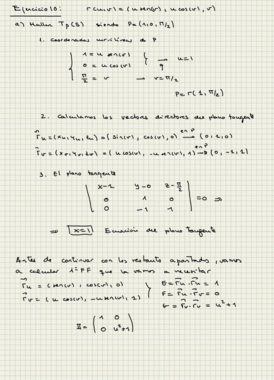 Ejercicio 10: r(u,v) = (u sen(v), u cos(v), v)
a) Hallar Tp(S) siendo P=(1,0,π/2)
1. Coordenadas curvilíneas de P
1 = u sen(v)
0 = u cos(v) → u=1
π/2 = v → v=π/2
P=r(1,π/2)
2. Calculamos los vectores directores del plano tangente
r⃗u=(xu,yu,zu)=(sin(v), cos(v), 0) → (0,1,0)
r⃗v=(xv,yv,zv)=(u cos(v), -u sen(v), 1) → (0,-1,1)
3. El plano tangente
| x-1 y-0 z-π/2 |
| 0 1 0 | =0 ⇒
| 0 -1 1 |
⇒ x=1 Ecuación del plano tangente
Antes de continuar con los restantes apartados, vamos
a calcular 1ª FF que la vamos a necesitar
r⃗u = (sen(v), cos(v), 0) E=r⃗u·r⃗u = 1
r⃗v = (u cos(v), -u sen(v), 1) F=r⃗u·r⃗v = 0
G=r⃗v·r⃗v = u²+1
I= (1 0
0 u²+1)